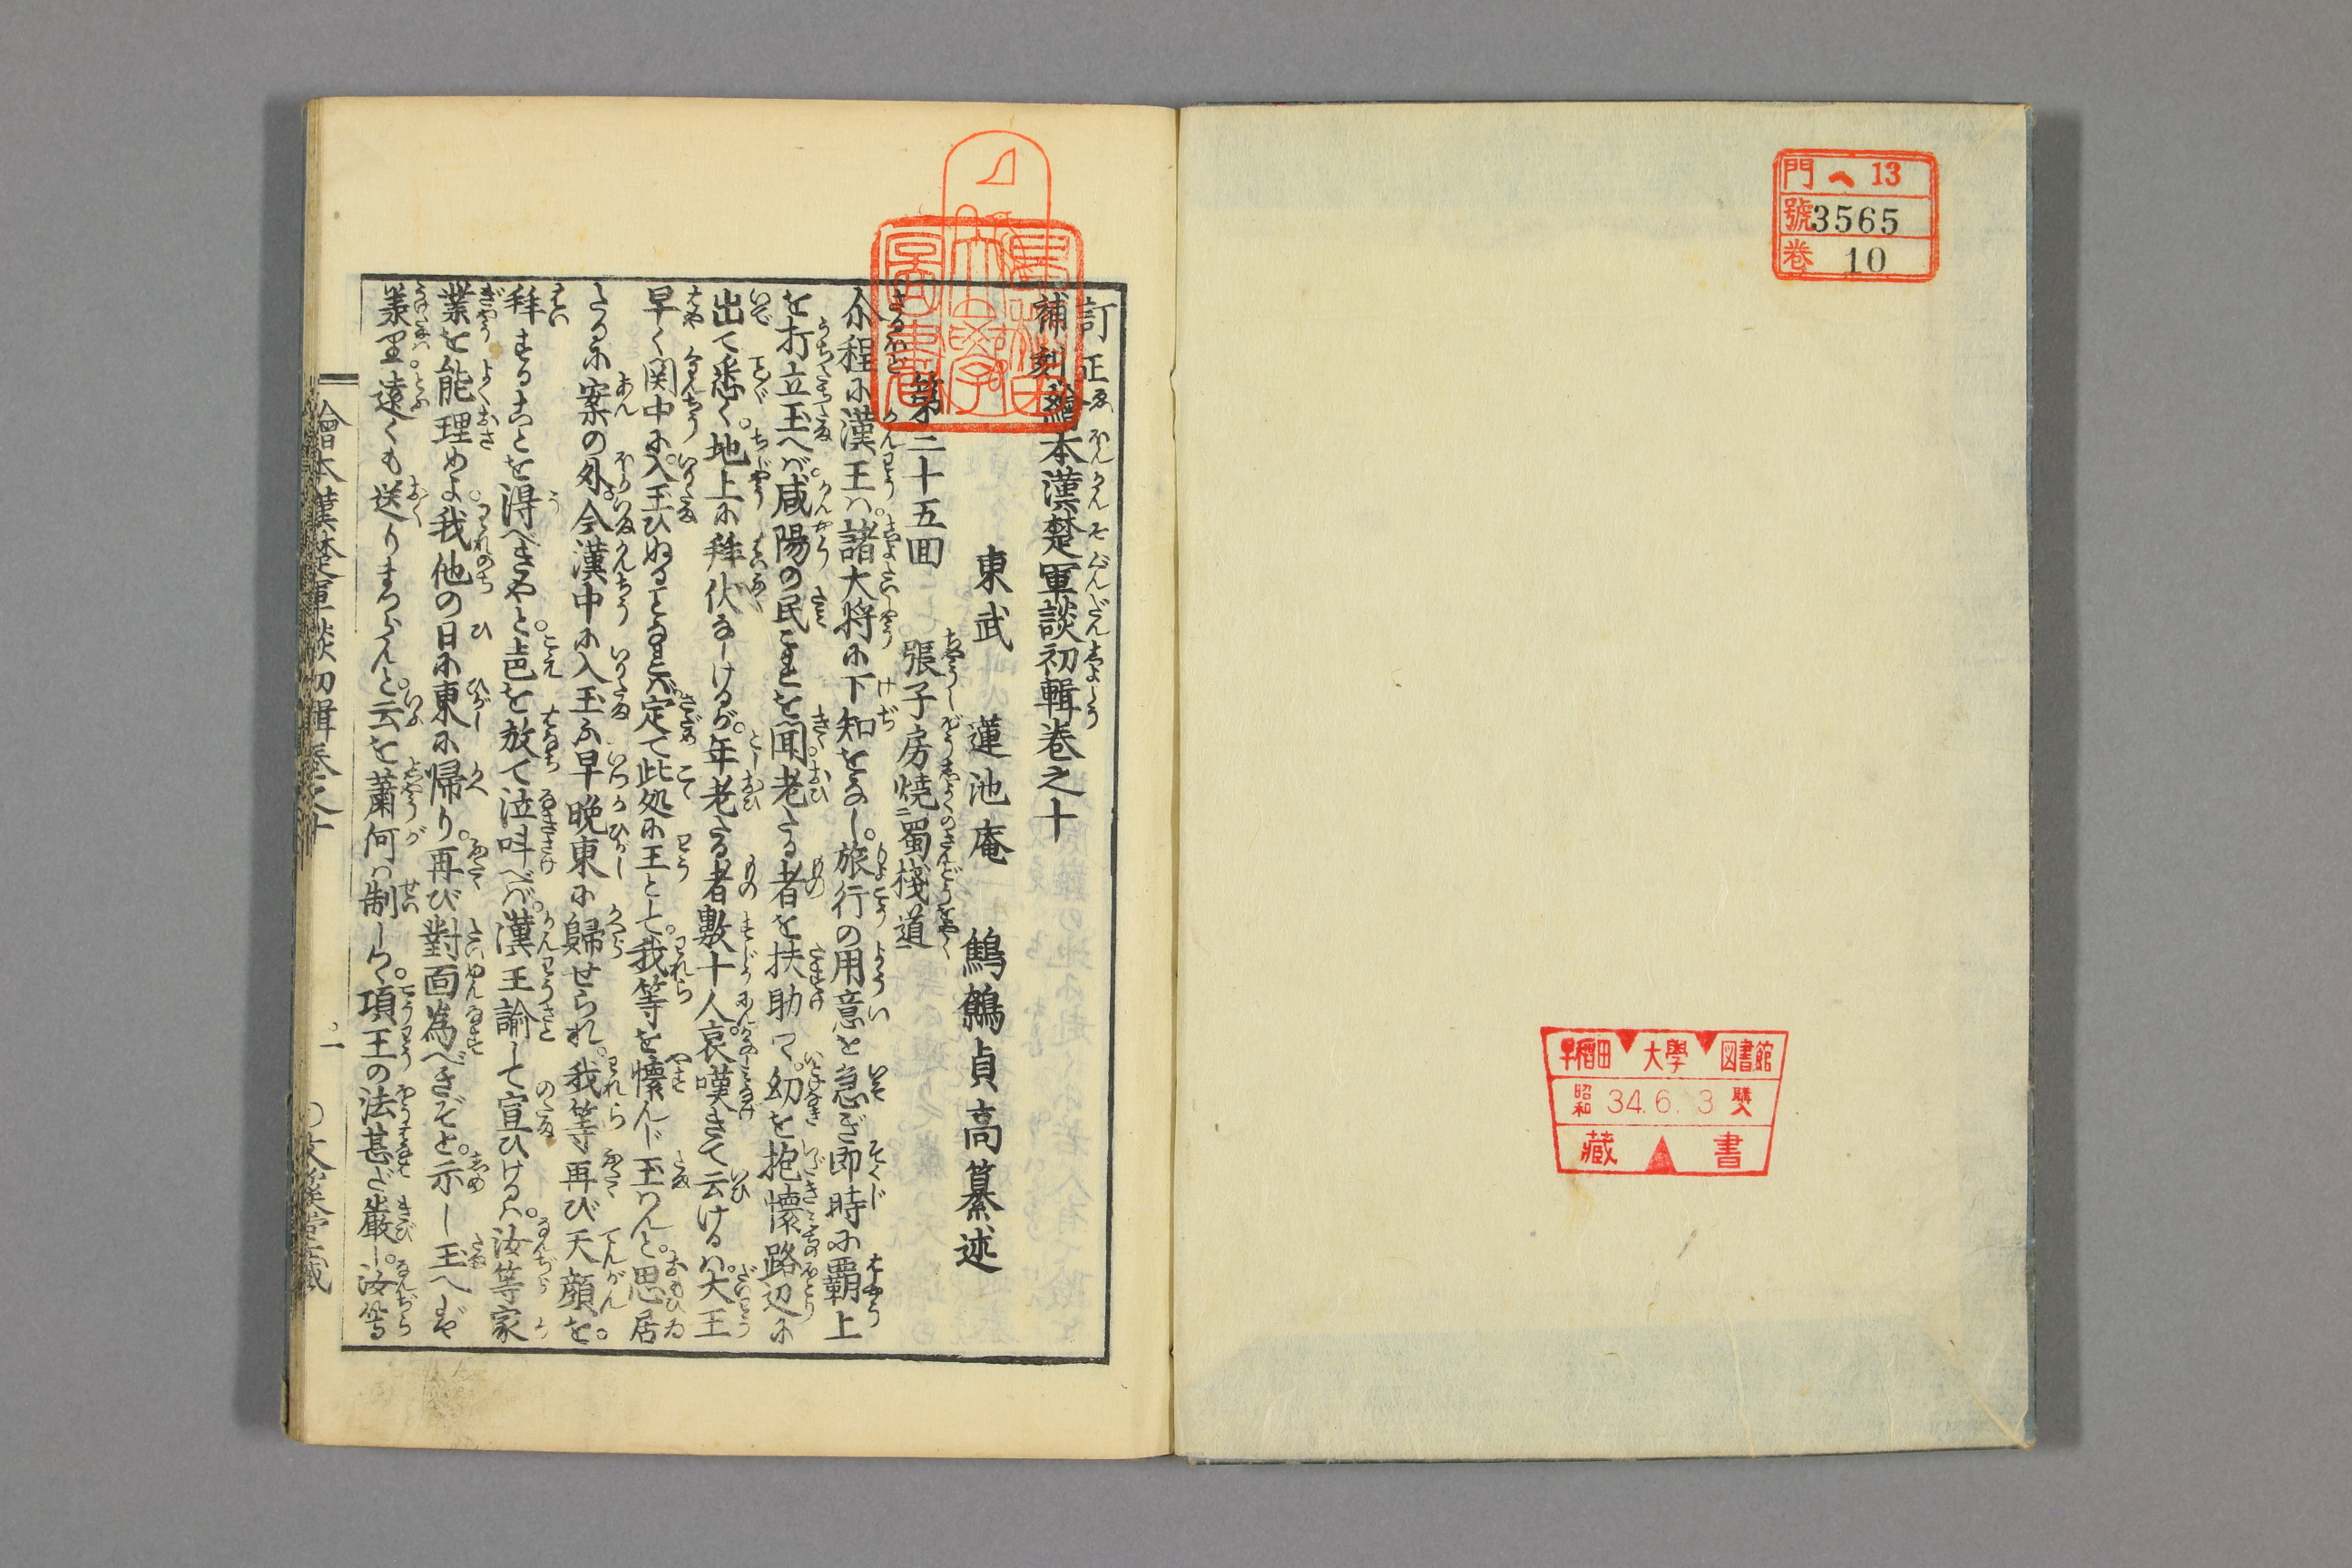 門 ヘ 13
號 3565
巻 10
早稲田大學図書館
昭和 34.6.3 購入
藏書
早稲田大學圖書
訂正
補刻
繪本漢楚軍談初輯巻之十
東武 蓮池庵 鷦鷯貞高纂述
第二十五囬 張子房燒蜀棧道
尒程に漢王ハ諸大将に下知をなし。旅行の用意を急ぎ即時に覇上
を打立玉へバ。咸陽の民これを聞。老たる者を扶助つゝ。幼を抱懐路辺に
出て悉く。地上に拜伏なしけるが。年老たる者數十人。哀嘆きて云けるハ。大王
早く関中に入玉ひぬることなれバ。定て此処に王として。我等を懷んじ玉はんと。思居
たるに案の外。今漢中に入玉ふ早晩東に歸せられ。我等再び天顔を。
拜することを得べきやと。声を放て泣呌べバ。漢王諭して宣ひけるハ。汝等家
業を能理めよ。我他の日に東に帰り。再び對面為べきぞと。示し玉へバ
義里遠くも送りまゐらんと。云を蕭何ハ制しつゝ。項王の法甚だ嚴し。汝等
繪本漢楚軍談初輯巻之十 一 〇文溪堂藏